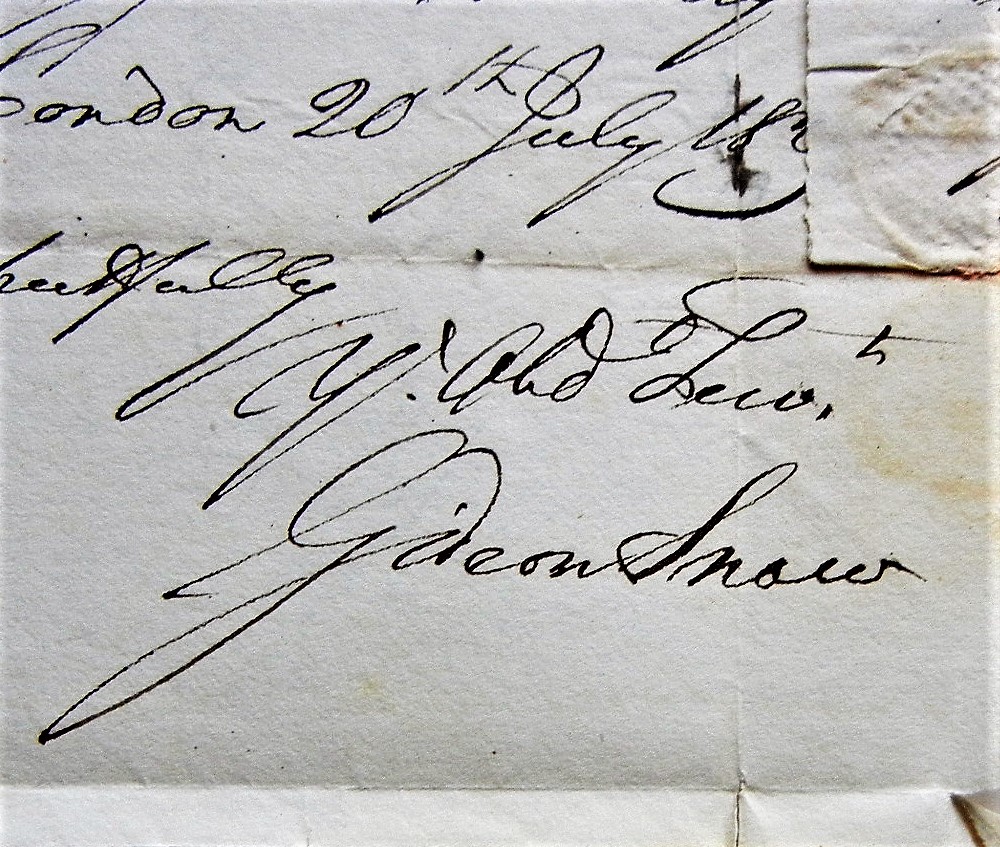 London 20th July 18
pectfully
Yr. Obd Servt
Gideon Snow